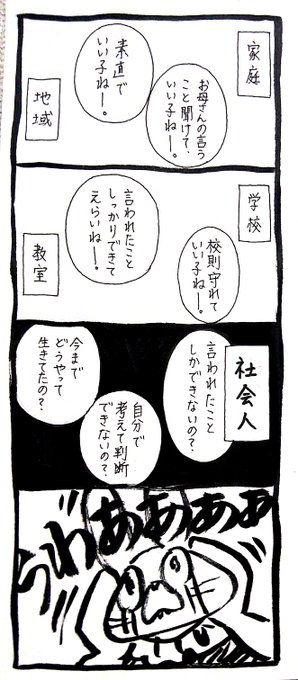 家庭
お母さんの言う
こと聞けて、
いい子ねー。
素直で
いい子ねー。
地域
学校
校則守れて
いい子ねー。
言われたこと
しっかりできて
えらいねー。
教室
社会人
言われたこと
しかできないの？
自分で
考えて判断
できないの？
今まで
どうやって
生きてたの？
うわああああ